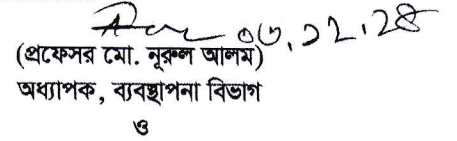 ০৩.১২.২৪
(প্রফেসর মো. নূরুল আলম)
অধ্যাপক, ব্যবস্থাপনা বিভাগ
ও